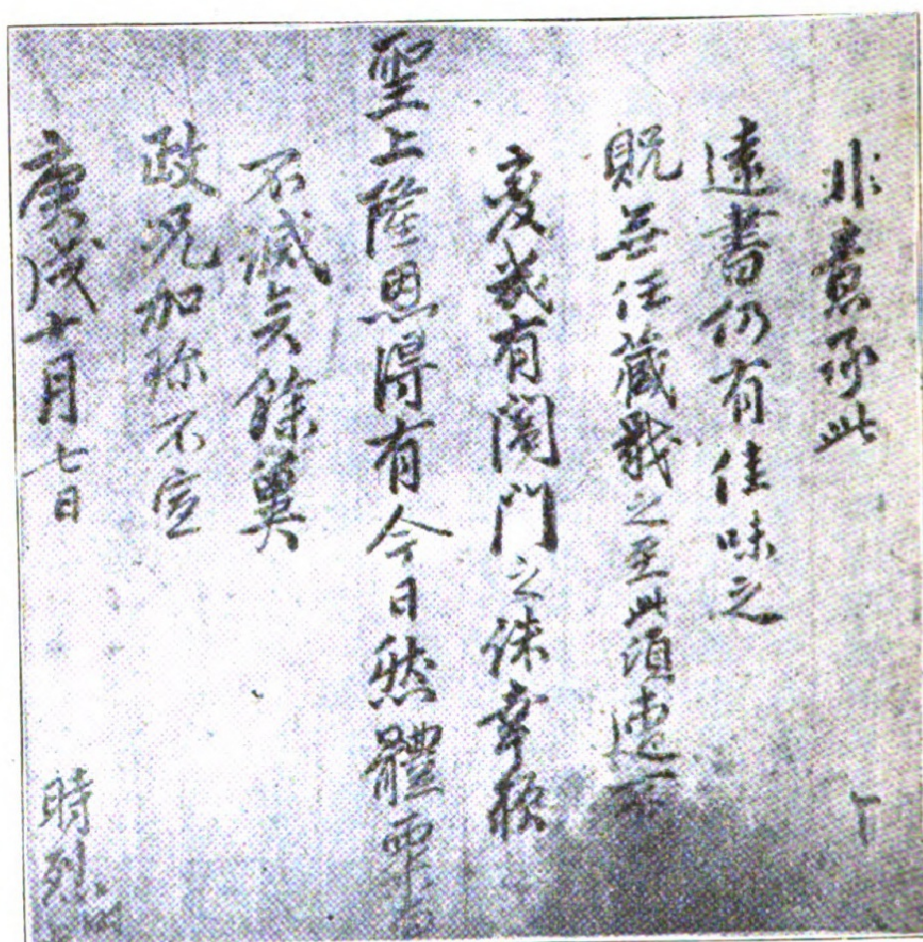 非意承此
遠書仍有佳味之
貺無任藏戢之至此須遭
變幾有闔門之誅幸荻
聖上隆恩得有今日然體
不滅矣餘冀
政況加珍不宣
庚戌十月七日
時烈